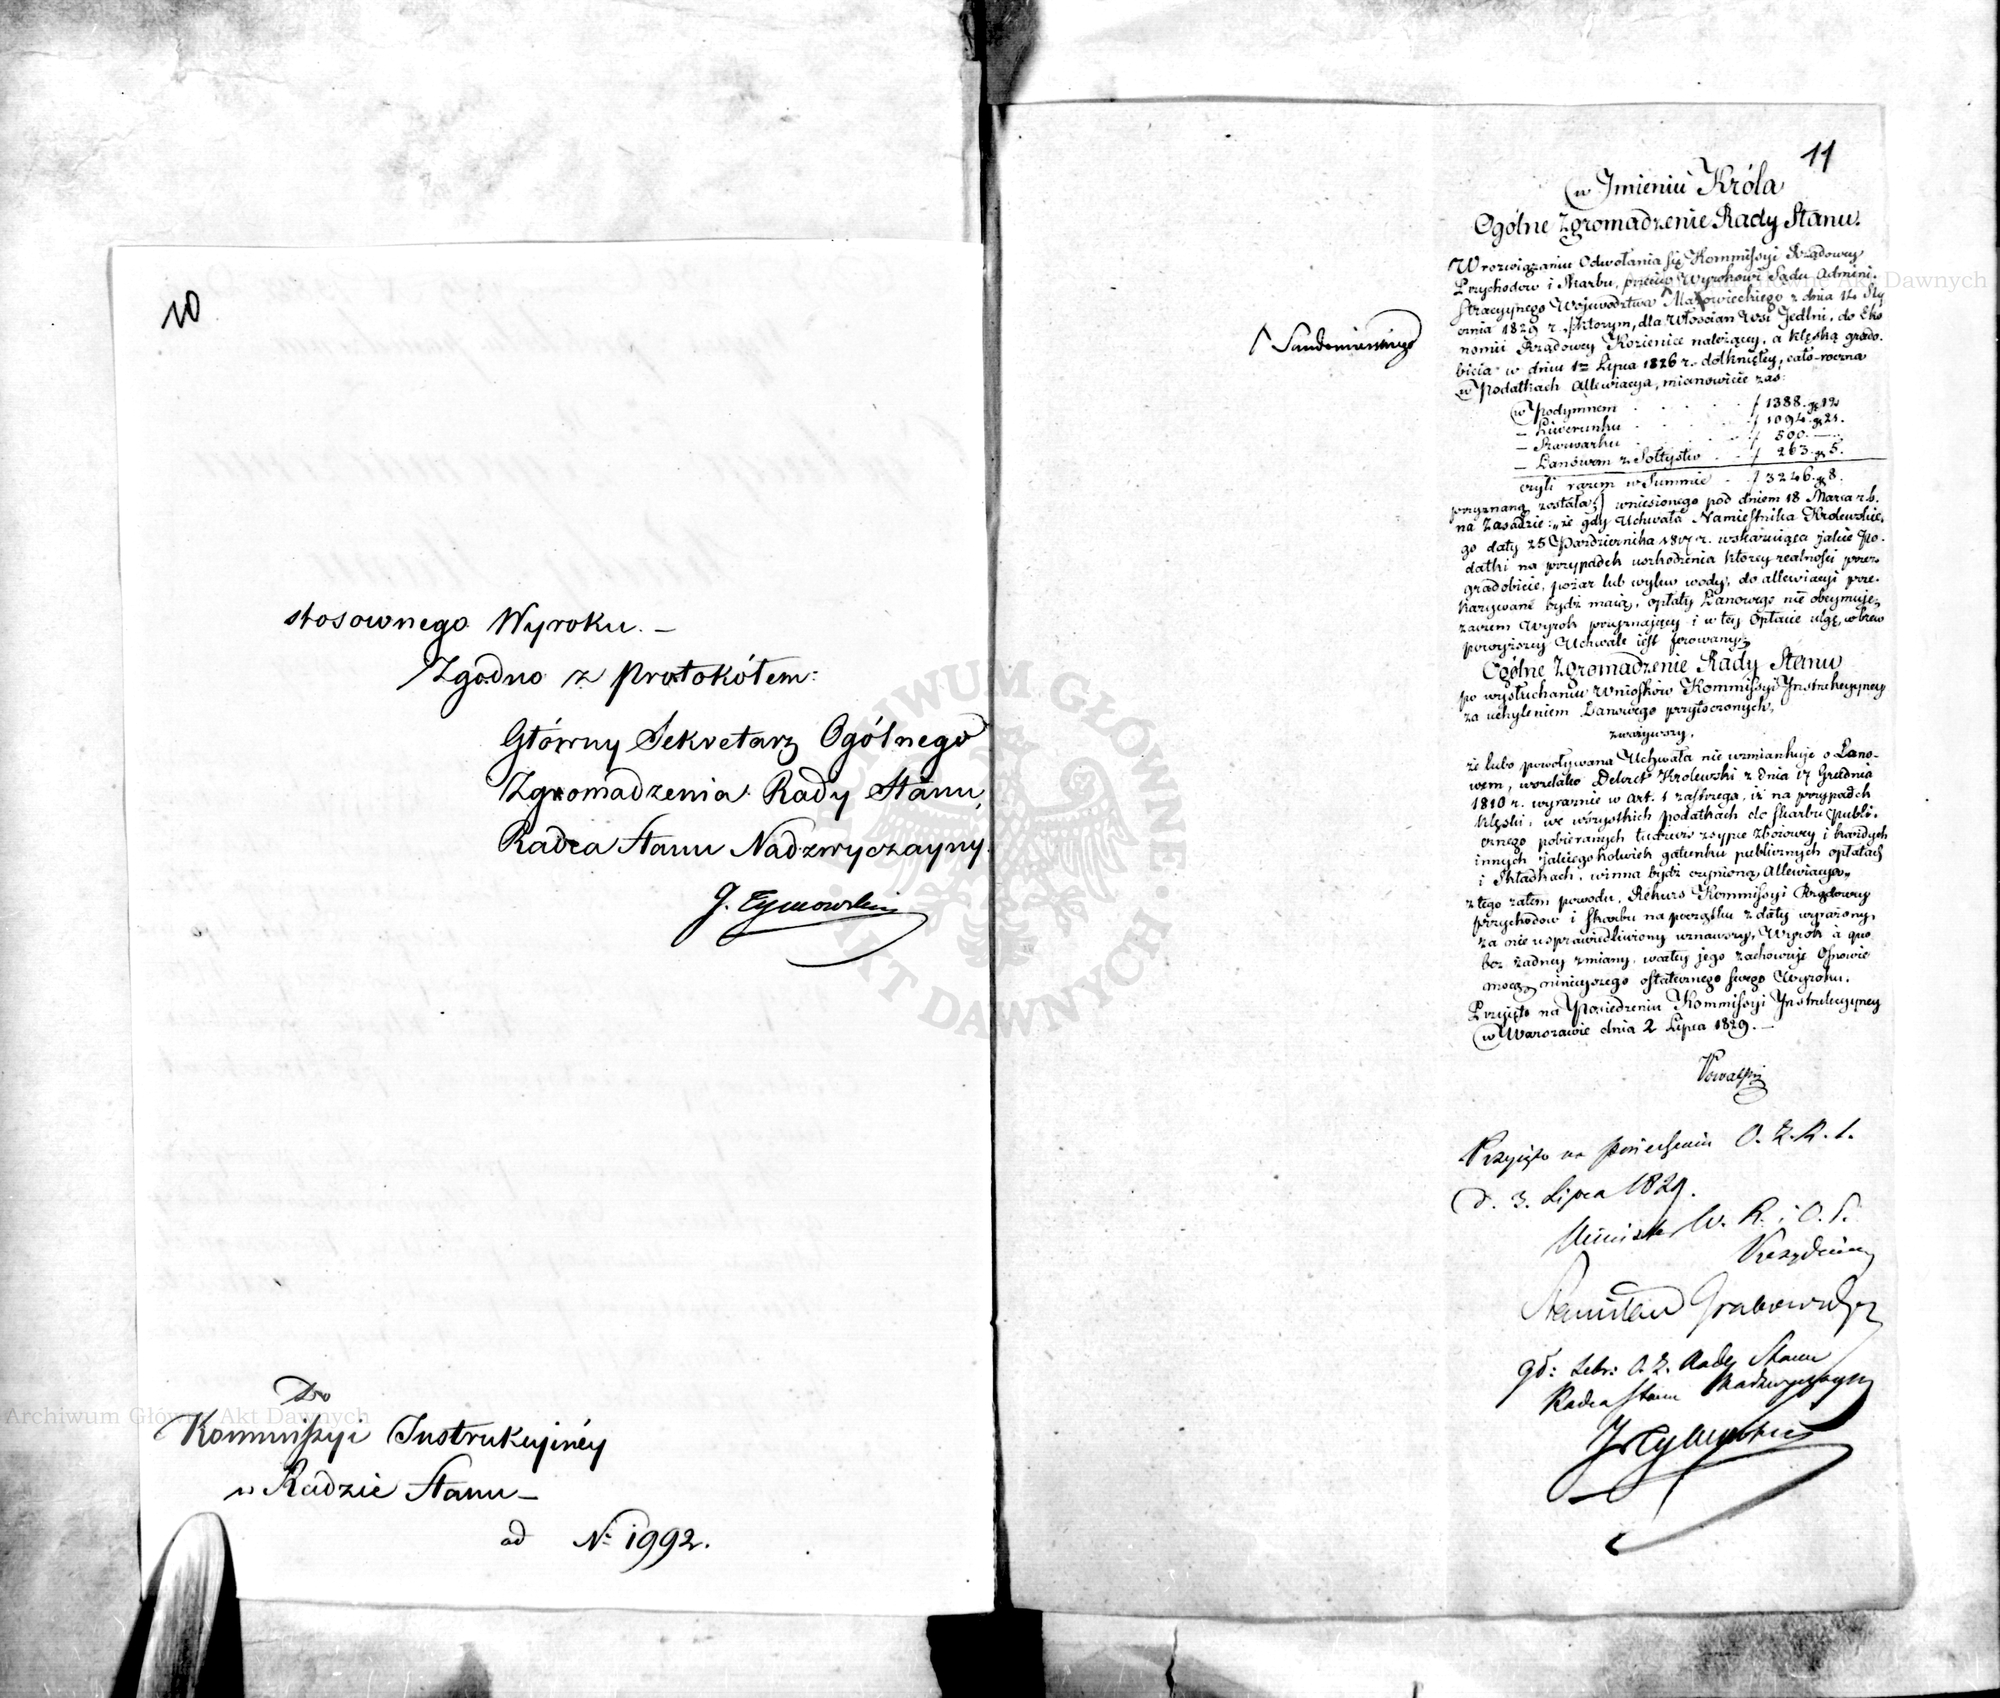 10
stosownego Wyroku. —
Zgodno z Protokółem:
Główny Sekretarz Ogólnego
Zgromadzenia Rady Stanu,
Radca Stanu Nadzwyczayny.
J. Tymowski
Do
Kommissyi Instrukcyinéy
w Radzie Stanu —
ad № 1992.
11
w Imieniu Króla
Ogólne Zgromadzenie Rady Stanu.
W rozwiązaniu Odwołania się Kommissyi Rządowey
Przychodow i Skarbu, przeciw Wyrokowi Sądu Admini-
stracyjnego Województwa Mazowieckiego z dnia 12 Sty
cznia 1829 r. którym, dla Włościan Wsi Jedlni, do Eko
nomii Rządowey Kozienice należącey, a klęską grado-
bicia w dniu 12 Lipca 1826 r. dotkniętey, cało-roczna
w Podatkach Allewiacya, mianowicie zaś:
w Podymnem f 1388. gr 12
— Liwerunku f 1094. gr 21.
— Szarwarku f 500. —
— Łanowem z Sołtystw f 263. gr 5.
czyli razem w Summie f 3246. gr 8.
przyznaną została; wniesionego pod dniem 18 Marca r. b.
na Zasadzie: „że gdy Uchwała Namiestnika Królewskie-
go daty 25 Października 1817 r. wskazuiąca jakie Po-
datki na przypadek uszkodzenia którey realności przez
gradobicie, pożar lub wylew wody, do allewiacyi prze-
kazywane bydź maią, opłaty Łanowego nie obeymuje,
zaczem Wyrok przyznający i w tey Opłacie ulgę, wbrew
powyższey Uchwale jest ferowany;
Ogólne Zgromadzenie Rady Stanu
po wysłuchaniu Wniosków Kommissyi Instrukcyyney
za uchyleniem Łanowego przytoczonych,
zważywszy,
że lubo powoływana Uchwała nie wzmiankuje o Łano-
wem, wszelako Dekret Królewski z Dnia 17 Grudnia
1810 r. wyraźnie w Art. 1 zastrzega, iż na przypadek
klęski, we wszystkich podatkach do Skarbu Publi-
cznego pobieranych tudzież zsypce zbożowey i każdych
innych jakiegokolwiek gatunku publicznych opłatach
i Składkach, winna bydź czynioną Allewiacya„
z tego zatem powodu, Rekurs Kommissyi Rządowey
Przychodow i Skarbu na początku z daty wyrażony,
za nieusprawiedliwiony uznawszy, Wyrok à quo
bez żadney zmiany, w całey jego zachowuje Osnowie
mocą ninieyszego ostatecznego swego Wyroku.
Przyięto na Posiedzeniu Kommissyi Instrukcyyney
w Warszawie dnia 2 Lipca 1829. —
Sandomierskiego
Przyięto na posiedzeniu O. Z. R. S.
d. 3. Lipca 1829.
Minister W. R. i O. P.
Prezydujący
Stanisław Grabowski
Gł: Sekr: O. Z. Rady Stanu
Radca Stanu Nadzwyczayny
J Tymowski
ARCHIWUM GŁÓWNE · AKT DAWNYCH ·
Archiwum Główne Akt Dawnych
Archiwum Główne Akt Dawnych